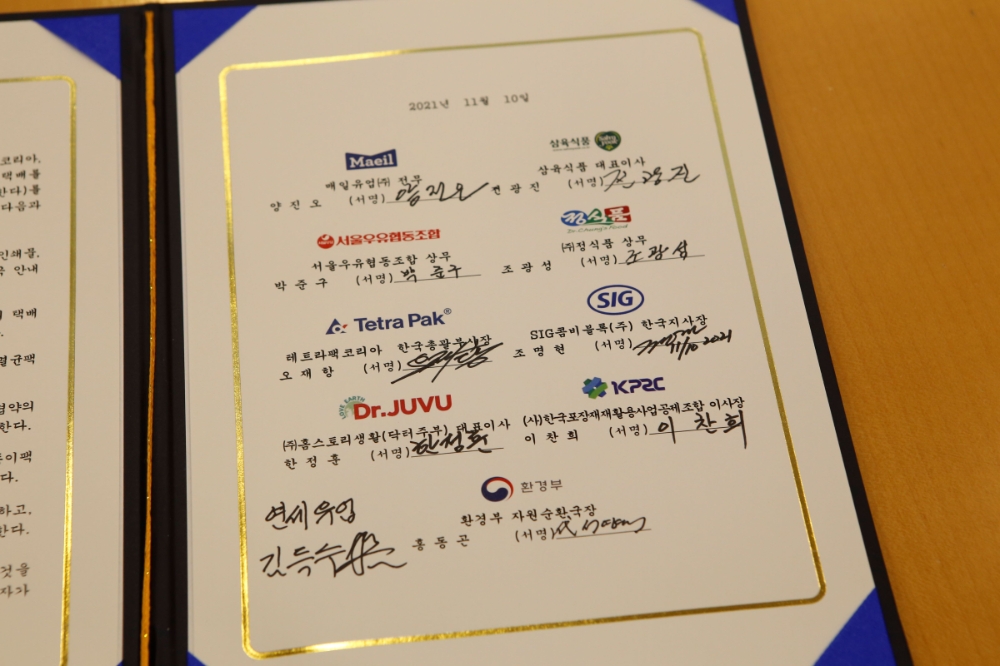 코리아,
택배를
한다)를
다음과
인쇄를,
안내
택배
멸균팩
협약의
한다.
종이팩
다.
하고,
한다.
것을
자가
2021년 11월 10일
Maeil
매일유업(주) 전무
양진오 (서명) 양진오
삼육식품
삼육식품 대표이사
전광진 (서명) 전광진
서울우유협동조합
서울우유협동조합 상무
박준구 (서명) 박준구
정식품
Dr. Chung's Food
(주)정식품 상무
조광성 (서명) 조광섭
Tetra Pak®
테트라팩코리아 한국총괄부사장
오재항 (서명)
SIG
SIG콤비블록(주) 한국지사장
조명현 (서명) 11/10 2021
LOVE EARTH
Dr.JUVU
(주)홈스토리생활(닥터주부) 대표이사
한정훈 (서명) 한정훈
KPRC
(사)한국포장재재활용사업공제조합 이사장
이찬희 (서명) 이찬희
환경부
환경부 자원순환국장
홍동곤 (서명)
연세유업
김득수